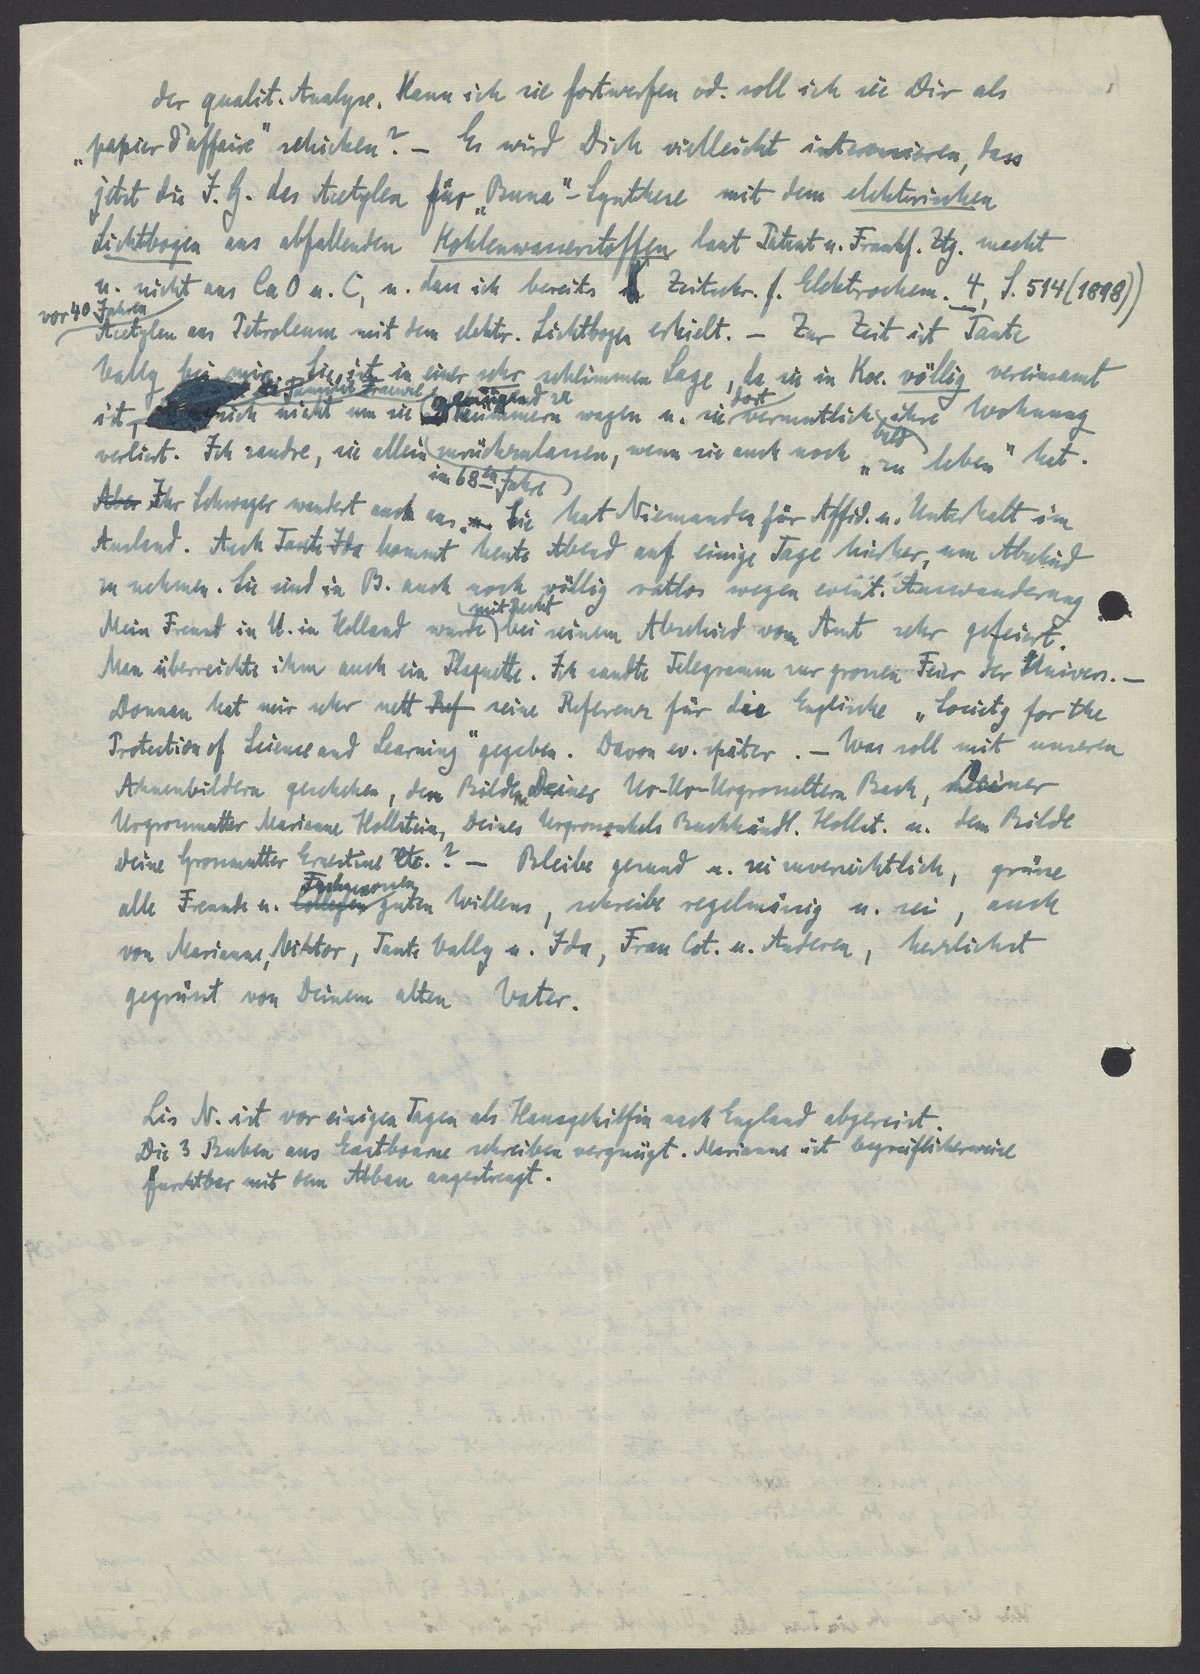 der qualit. Analyse. Kann ich sie fortwerfen od. soll ich sie Dir als
„papier d'affaire“ schicken? – Es wird Dich vielleicht interessieren, dass
jetzt die I. G. das Acetylen für „Buna“-Synthese mit dem elektrischen
Lichtbogen aus abfallenden Kohlenwasserstoffen laut Patent u. Frankf. Ztg. macht
u. nicht aus CaO u. C, u. dass ich bereits Zeitschr. f. Elektrochem. 4, S. 514 (1898))
vor 40 Jahren
Acetylen aus Petroleum mit dem elektr. Lichtbogen erhielt. – Zur Zeit ist Tante
Vally bei mir. Sie ist in einer sehr schlimmen Lage, da sie in Koe. völlig vereinsamt
ist, sich nicht um sie genügend zu kümmern wagen u. sie dort vermutlich ihre Wohnung
verliert. Ich zaudre, sie allein zurückzulassen, wenn sie auch noch „zu leben“ hat.
im 68ten Jahre
Aber Ihr Schwager wandert auch aus. Sie hat Niemanden für Affid. u. Unterhalt im
Ausland. Auch Tante Ida kommt heute Abend auf einige Tage hierher, um Abschied
zu nehmen. Sie sind in B. auch noch völlig ratlos wegen event. Auswanderung
Mein Freund in U. in Holland wurde mit Recht bei seinem Abschied vom Amt sehr gefeiert.
Man überreichte ihm auch ein Plaquette. Ich sandte Telegramm zur grossen Feier der Univers. –
Donnan hat mir sehr nett Ref seine Referenz für die Englische „Society for the
Protection of Science and Learning“ gegeben. Davon ev. später. – Was soll mit unseren
Ahnenbildern geschehen, den Bildern Deiner Ur-Ur-Urgrosseltern Bach, Deiner
Urgrossmutter Marianne Hollstein, Deines Urgrossonkels Buchhändl. Hollst. u. dem Bilde
Deine Grossmutter Ernestine etc.? – Bleibe gesund u. sei zuversichtlich, grüsse
alle Freunde u. Collegen Fachgenossen guten Willens, schreibe regelmässig u. sei, auch
von Marianne, Viktor, Tante Vally u. Ida, Frau Cot. u. Anderen, herzlichst
gegrüsst von Deinem alten Vater.
Lis N. ist vor einigen Tagen als Hausgehilfin nach England abgereist.
Die 3 Buben aus Eastbourne schreiben vergnügt. Marianne ist begreiflicherweise
furchtbar mit dem Abbau angestrengt.